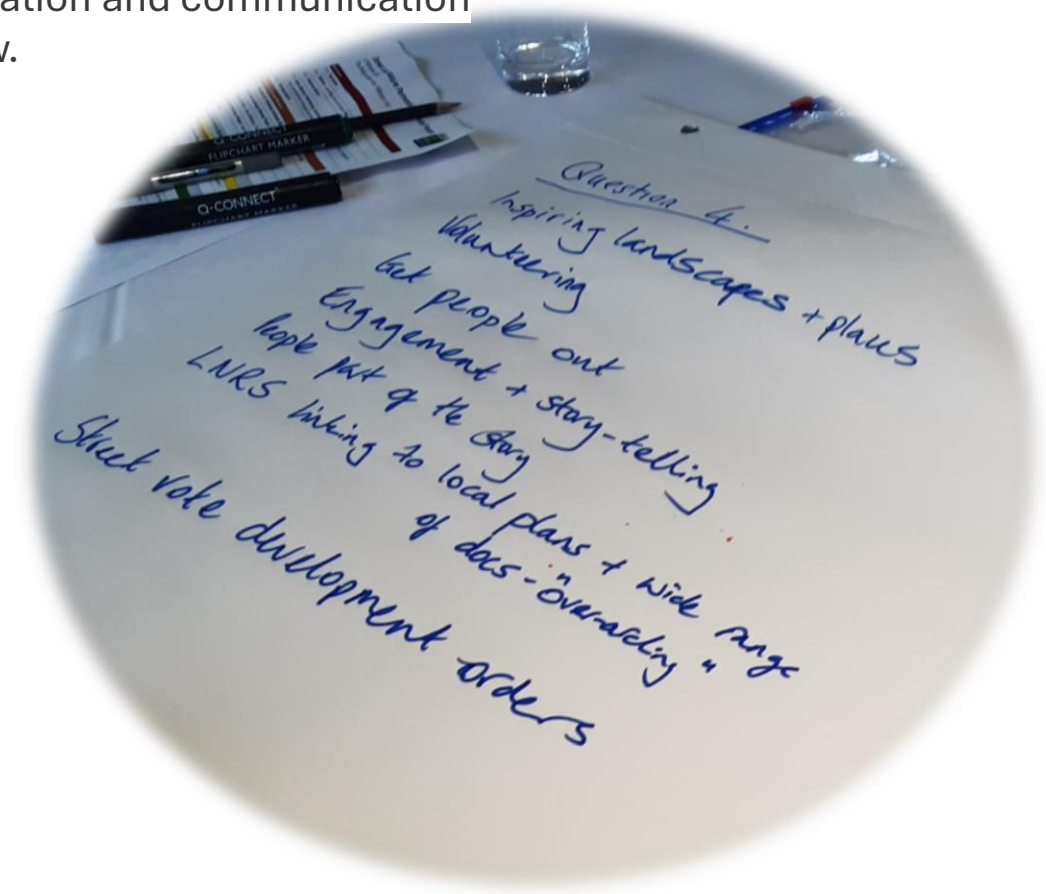 ation and communication
Q-CONNECT
FLIPCHART MARKER
Q-CONNECT
FLIPCHART MARKER
Question 4.
Inspiring landscapes + places
Volunteering
Get people out
Engagement + story-telling
People part of the story
LNRS linking to local plans + wide range
of docs - "over-arching"
Street vote development orders